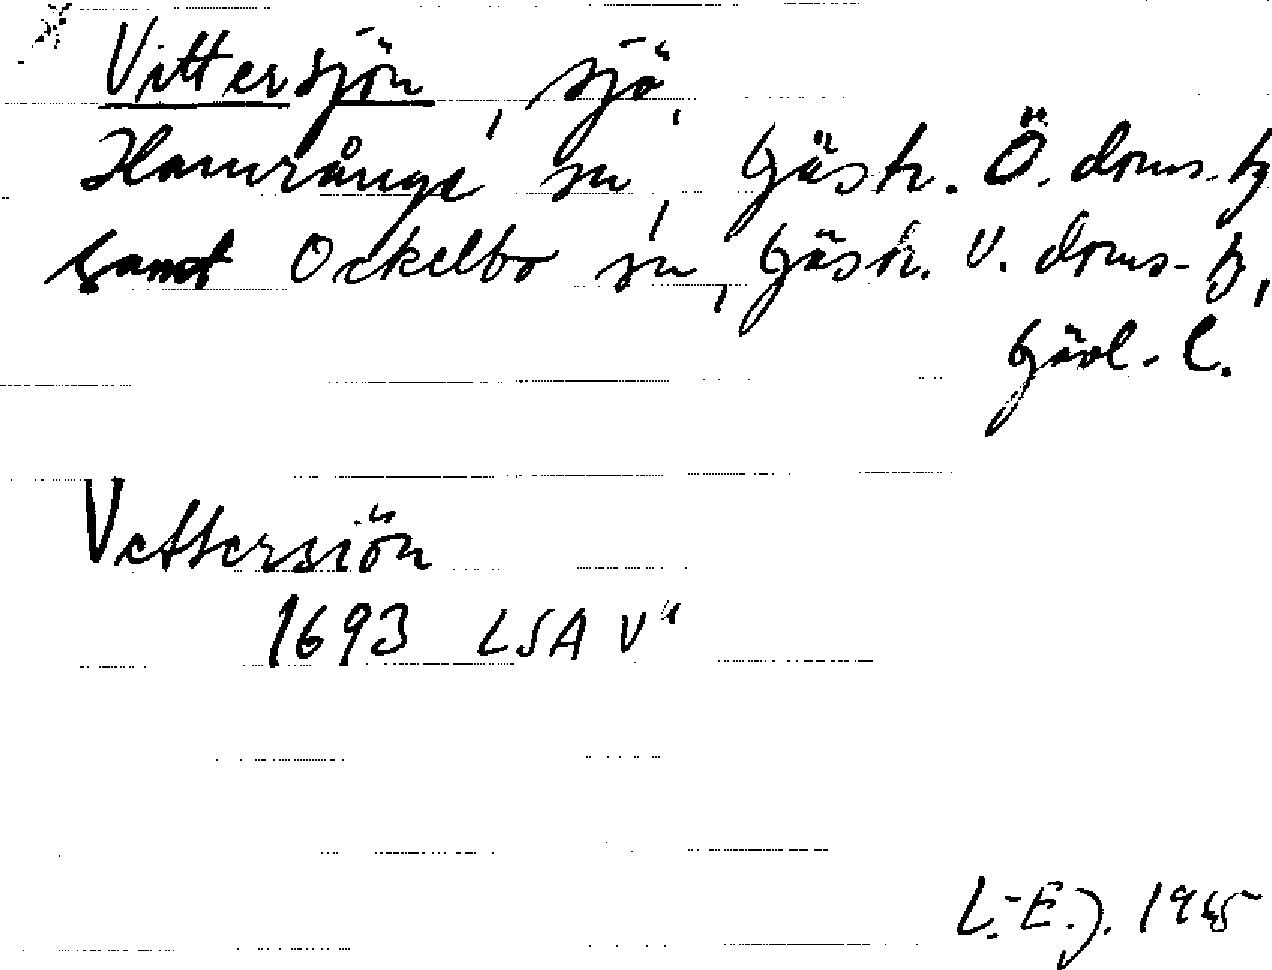 Vittersjön, sjö,
Hamrånge sn, Gästr. Ö. doms.
samt Ockelbo sn, Gästr. V. doms-
Gävl. l.
Vettersiön
1693 LSA V"
L.-E.J. 1965